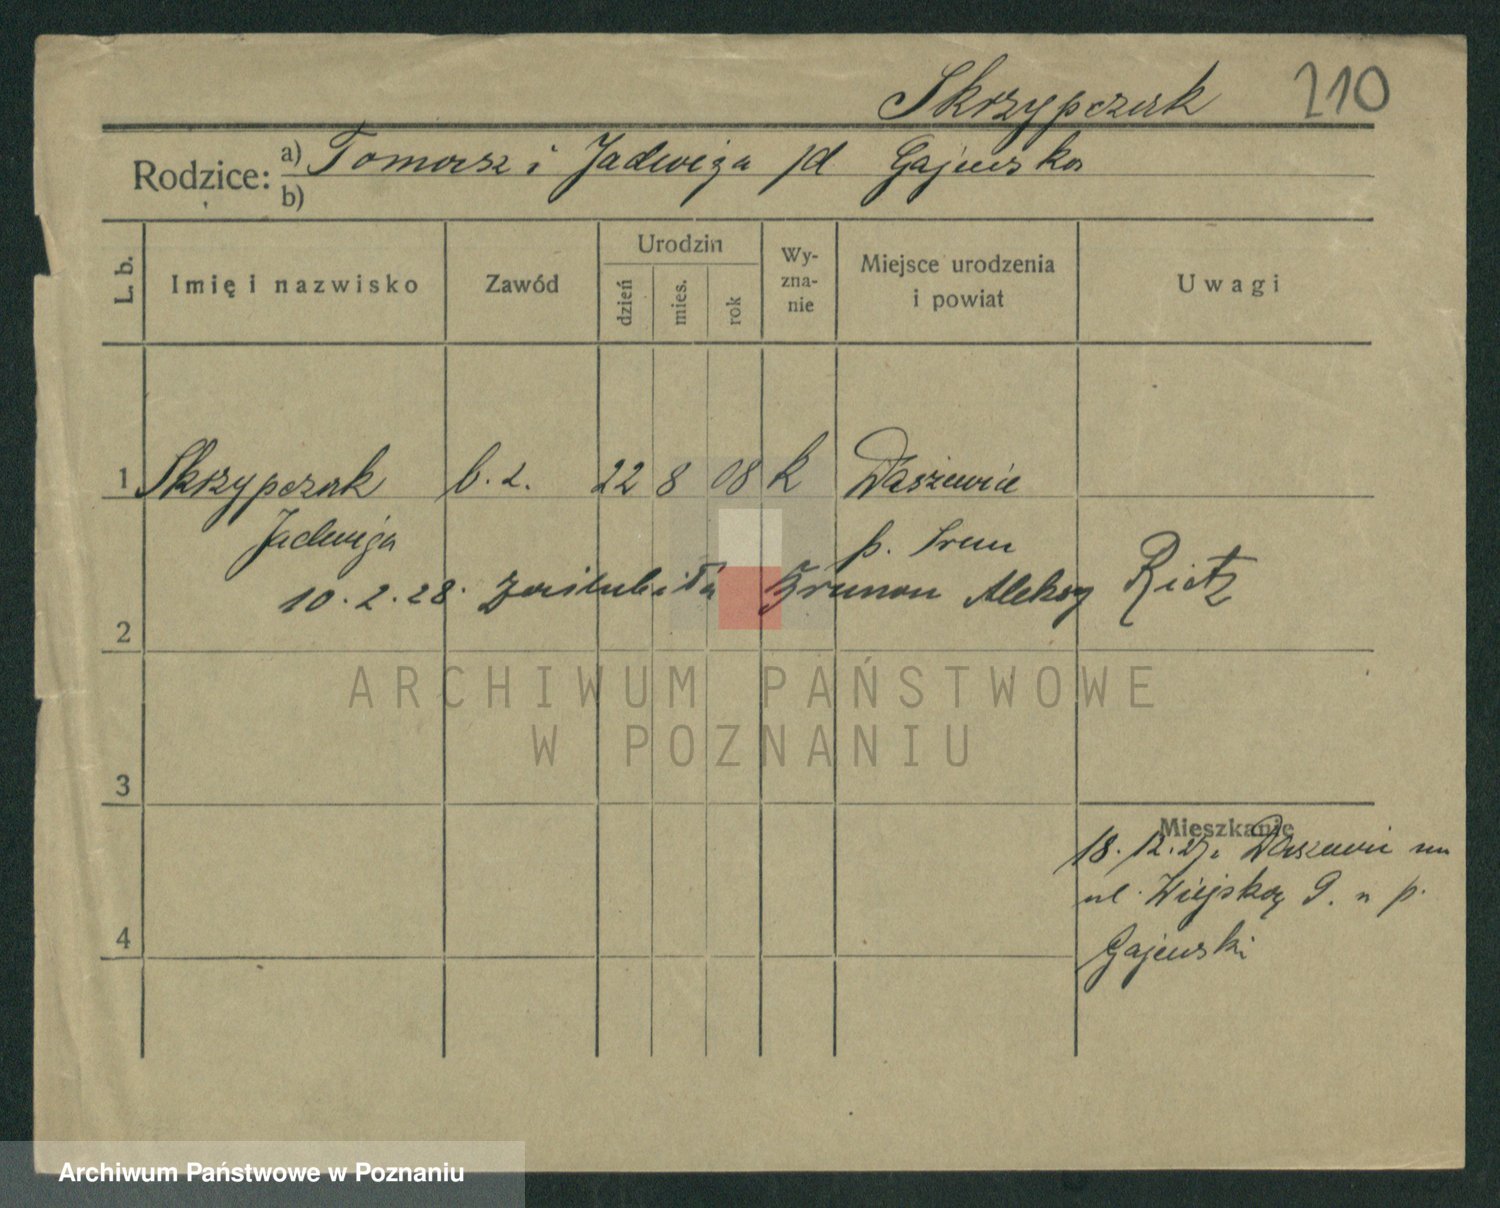 Skrzypczak 210
Rodzice: a) Tomasz i Jadwiga jd Gajewska
b)
L. b. Imię i nazwisko Zawód Urodzin dzień mies. rok Wy-zna-nie Miejsce urodzenia i powiat Uwagi
1 Skrzypczak b. z. 22 8 08 k Daszewice
Jadwiga p. Śrem
10.2.28. zaślubiła Brunon Aleksy Rietz
2
ARCHIWUM PAŃSTWOWE
W POZNANIU
3
Mieszkanie
18.12.27. Daszewic na
ul. Wiejską 9. u p.
4 Gajewski
Archiwum Państwowe w Poznaniu